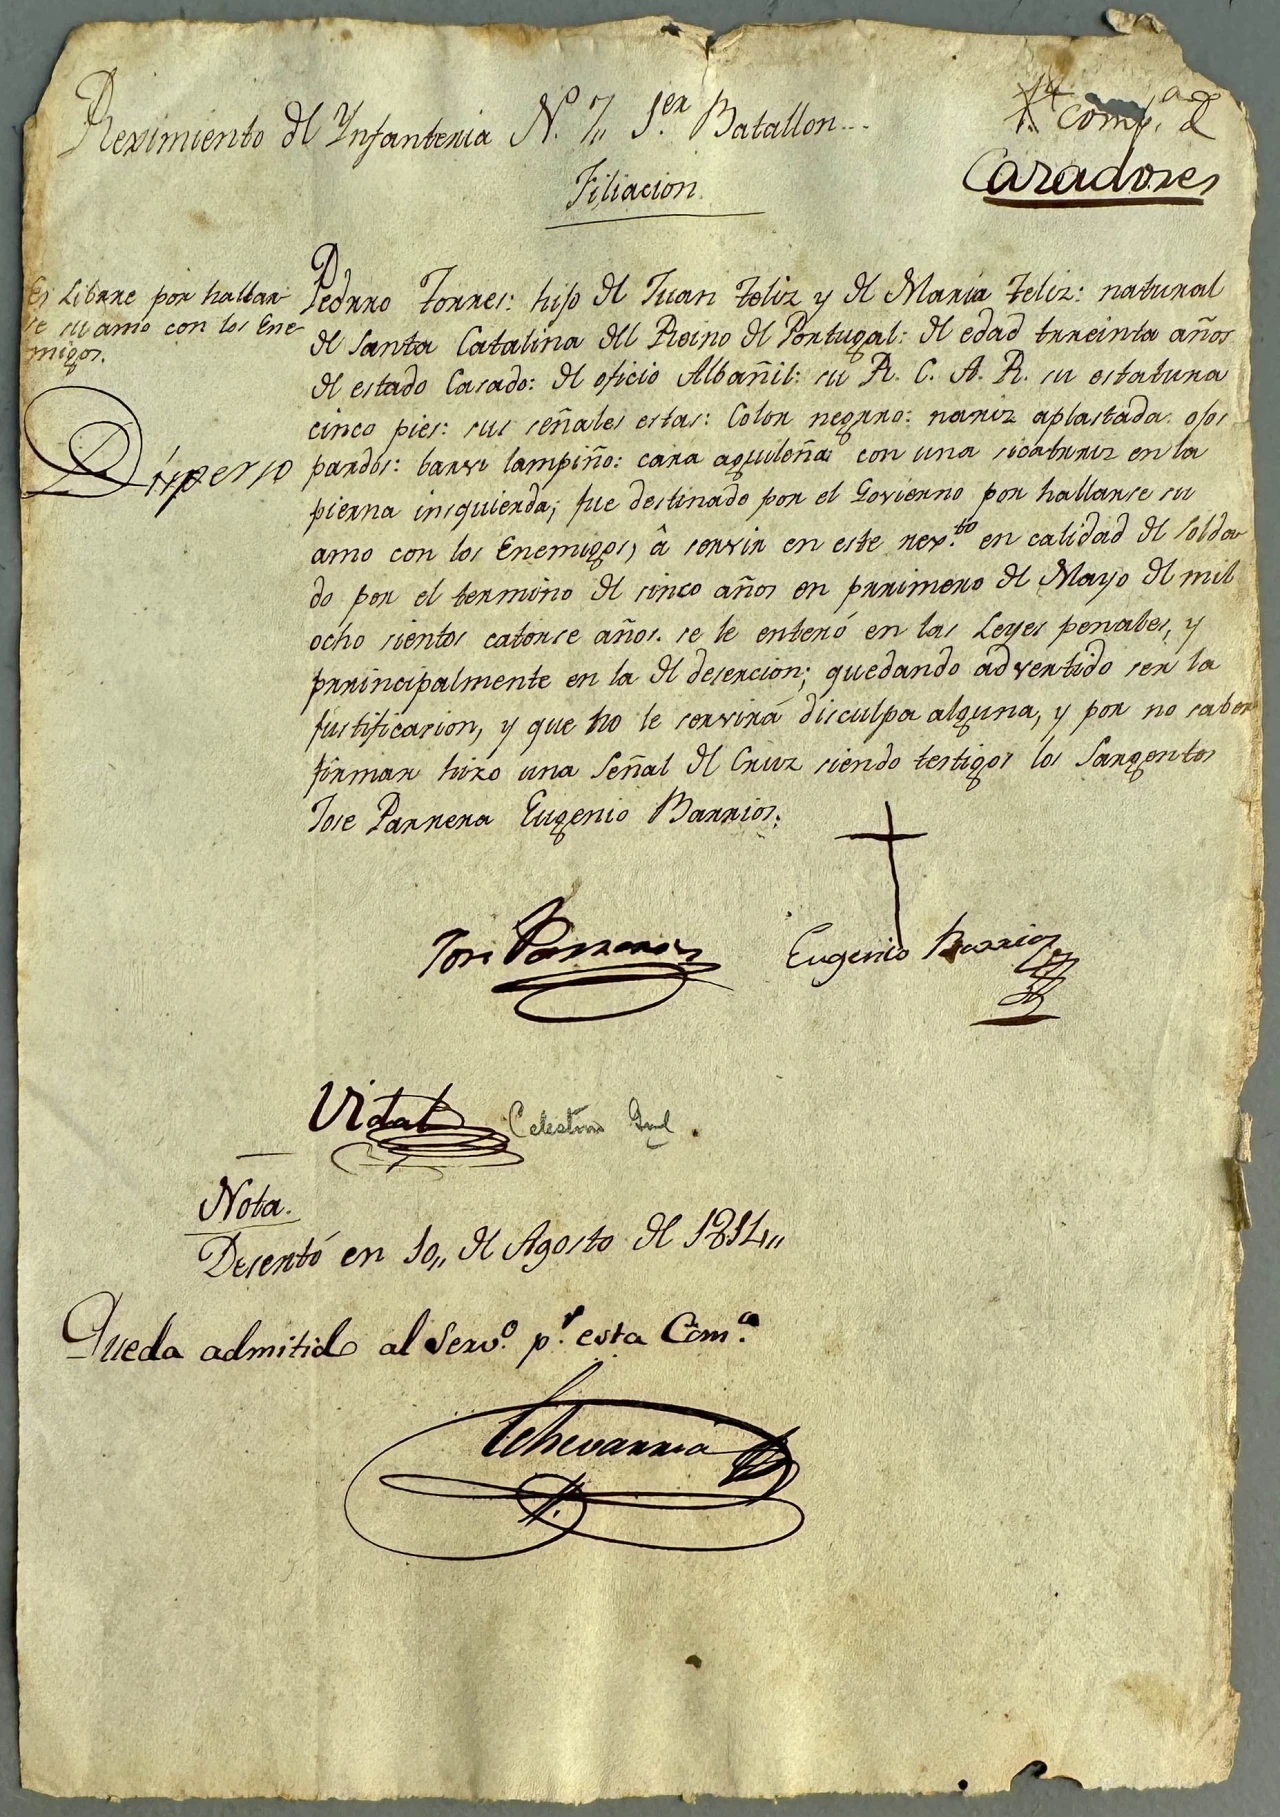 Reximiento dl Ynfanteria N.º 7,, 1.er Batallon...
1.ª Comp.ª d
Cazadores
Filiacion.
Es Libre por hallar
se su amo con los Ene
migos.
Disperso
Pedrro Torres: hijo dl Juan Feliz y dl Maria Feliz: natural
dl Santa Catalina dll Reino dl Portugal: dl edad trreinta años
dl estado Casado: dl oficio Albañil: su R. C. A. R. su estatura
cinco pies: sus señales estas: Color negrro: nariz aplastada. ojos
pardos: barvi lampiño: cara aguileña: con una sicatrriz en la
pierna insquierda; fue destinado por el Govierno por hallarse su
amo con los Enemigos, â servir en este rex.to en calidad dl Solda
do por el termino dl sinco años en prrimero dl Mayo dl mil
ocho sientos catorse años. se le enteró en las Leyes penales, y
prrincipalmente en la dl desercion; quedando advertido ser la
justificasion, y que no le servirá disculpa alguna, y por no saber
firmar hizo una Señal dl Cruz siendo testigos los Sargentos
Jose Parrera Eugenio Barrios.
Jose Parrera
Eugenio Barrios
Vidal
Celestino
Nota.
Desertó en 10,, dl Agosto dl 1814,,
Queda admitido al Serv.º p.r esta Com.ª
Echevarria